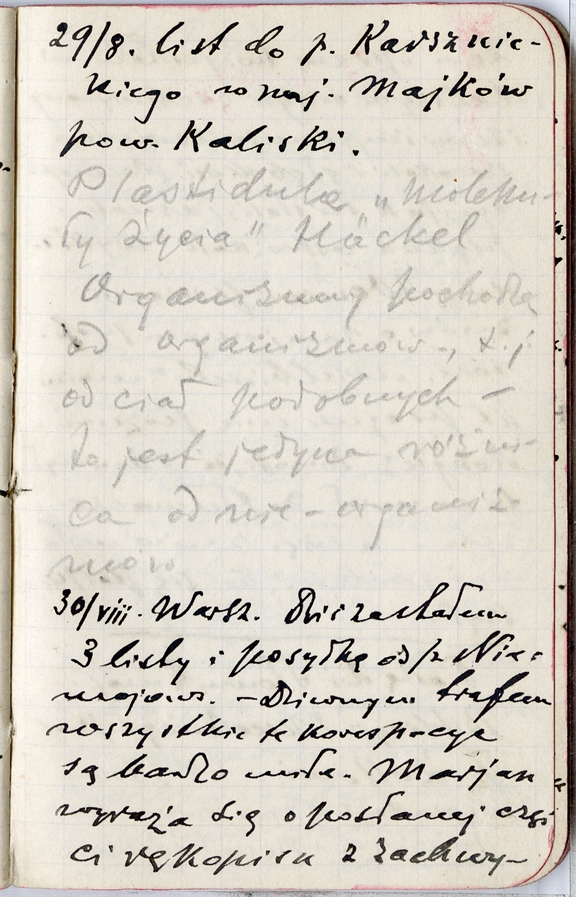 29/8. list do p. Karsznic-
kiego w maj. Majków
pow. Kaliski.
Plastidula „moleku-
ły życia" Häckel
Organizmy pochodzą
od organizmów, t.j.
od ciał podobnych –
to jest jedyna różni-
ca od nie-organiz-
mów
30/viii. Warsz. Dziś zastałem
3 listy i posyłkę od p. Nie-
mojow. – Dziwnym trafem
wszystkie te koresp-cye
są bardzo miłe. Marjan
wyraża się o posłanej czę-
ci rękopisu z zachwy-